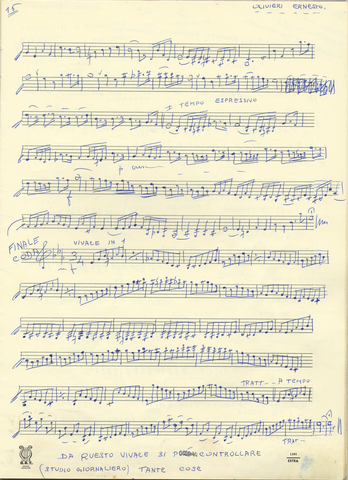 15
ULIVIERI ERNESTO.
I TEMPO ESPRESSIVO
p
f
FINALE
VIVALE IN 1
CODA
f
TRATT-- A TEMPO
TRAT--
DA QUESTO VIVALE SI PUÒ CONTROLLARE
(STUDIO GIORNALIERO) TANTE COSE
EXTRA